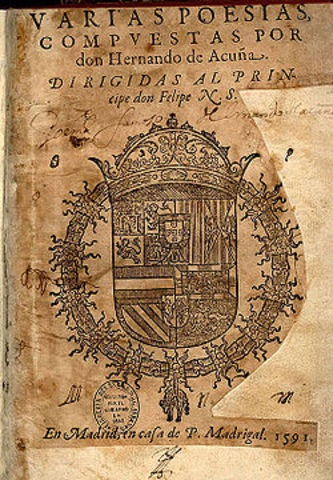 VARIAS POESIAS,
COMPVESTAS POR
don Hernando de Acuña.
DIRIGIDAS AL PRIN-
cipe don Felipe N. S.
En Madrid, en casa de P. Madrigal. 1591.